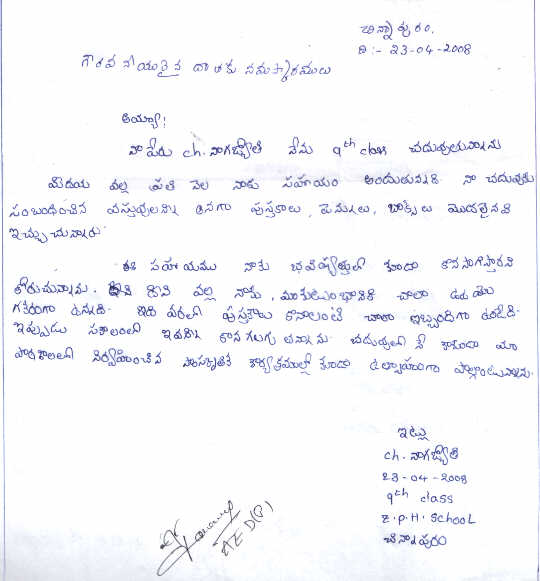 చిన్నాపురం,
ది :- 23-04-2008
గౌరవనీయులైన దాతకు నమస్కారములు
అయ్యా!
నా పేరు ch. నాగజ్యోతి నేను 9th class చదువుతున్నాను
మీదయ వల్ల ప్రతి నెల నాకు సహాయం అందుతున్నది నా చదువుకు
సంబంధించిన వస్తువులన్ని అనగా పుస్తకాలు, పెన్నులు, బాక్సులు మొదలైనవి
ఇచ్చుచున్నారు.
ఈ సహాయము నాకు భవిష్యత్తులో కూడా కొనసాగిస్తారని
కోరుచున్నాను. దీని వల్ల నాకు, మా కుటుంభానికి చాలా ఉపయో
గకరంగా ఉన్నది. ఇది వరలో పుస్తకాలు కొనాలంటే చాలా ఇబ్బందిగా ఉండేది.
ఇప్పుడు సకాలంలో ఇవన్ని కొనగలుగుతున్నాను. చదువులోనే కాకుండా మా
పాఠశాలలో నిర్వహించిన సాంస్కృతిక కార్యక్రమాల్లో కూడా ఉత్సాహంగా పాల్గొంటున్నాను.
ఇట్లు
ch. నాగజ్యోతి
23-04-2008
9th class
Z.P.H. SCHOOL
చిన్నాపురం